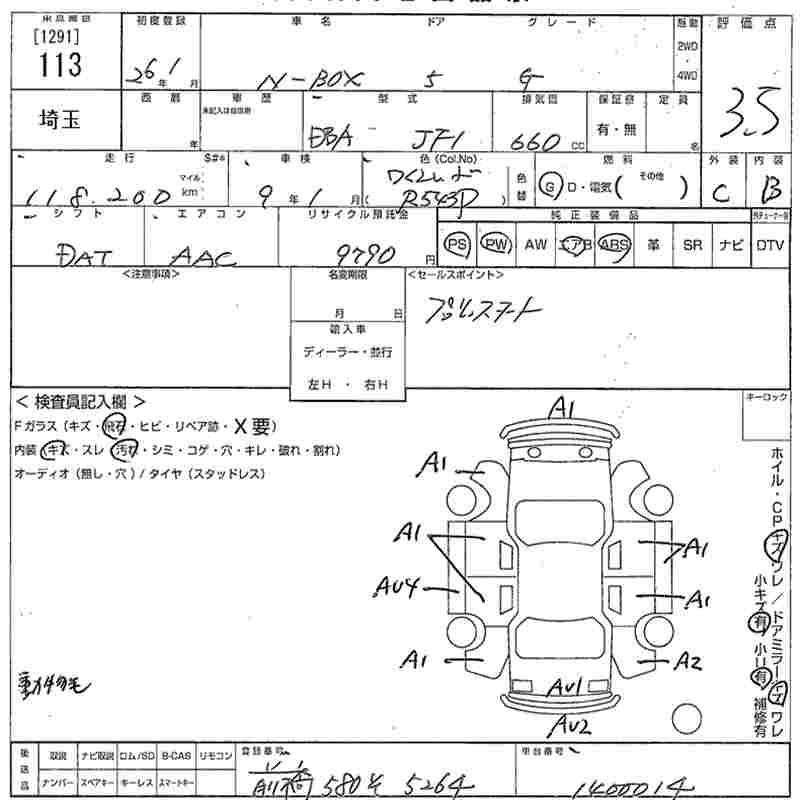 [1291]
113
埼玉
初度登録 車名 ドア グレード 駆動 評価点
26年1月 N-BOX 5 G 2WD 4WD 3.5
西暦 車歴 型式 排気量 保証書 定員
未記入は自家用
年 DBA JF1 660cc 有・無 名
走行 S#* 車検 色(Col.No) 燃料 外装 内装
118,200 マイル km 9年1月 ( R543P ) 色替 G D・電気( その他 ) C B
シフト エアコン リサイクル預託金 純正装備品
DAT AAC 9790円 PS PW AW エアB ABS 革 SR ナビ DTV
<注意事項> 名変期限 <セールスポイント>
月 日 プッシュスタート
輸入車
ディーラー・並行
左H ・ 右H
<検査員記入欄> キーロック
Fガラス(キズ・飛石・ヒビ・リペア跡・X要)
内装(キズ・スレ・汚れ・シミ・コゲ・穴・キレ・破れ・割れ)
オーディオ(無し・穴)/タイヤ(スタッドレス)
A1
A1
A1 A1
AU4 A1
A1 A2
AU1
AU2
動物毛
ホイル・CPキズ ワレ/ドアミラーキズ ワレ
小キズ有 小U有 補修有
後送品 取説 ナビ取説 ロム/SD B-CAS リモコン 登録番号 車台番号
ナンバー スペアキー キーレス スマートキー 前橋 580 そ 5264 1400014